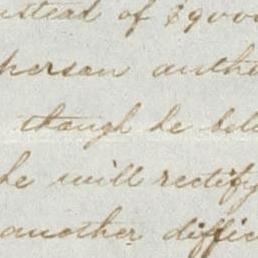 nstead of $900
person autho
though he bel
he will rectify
another diffic